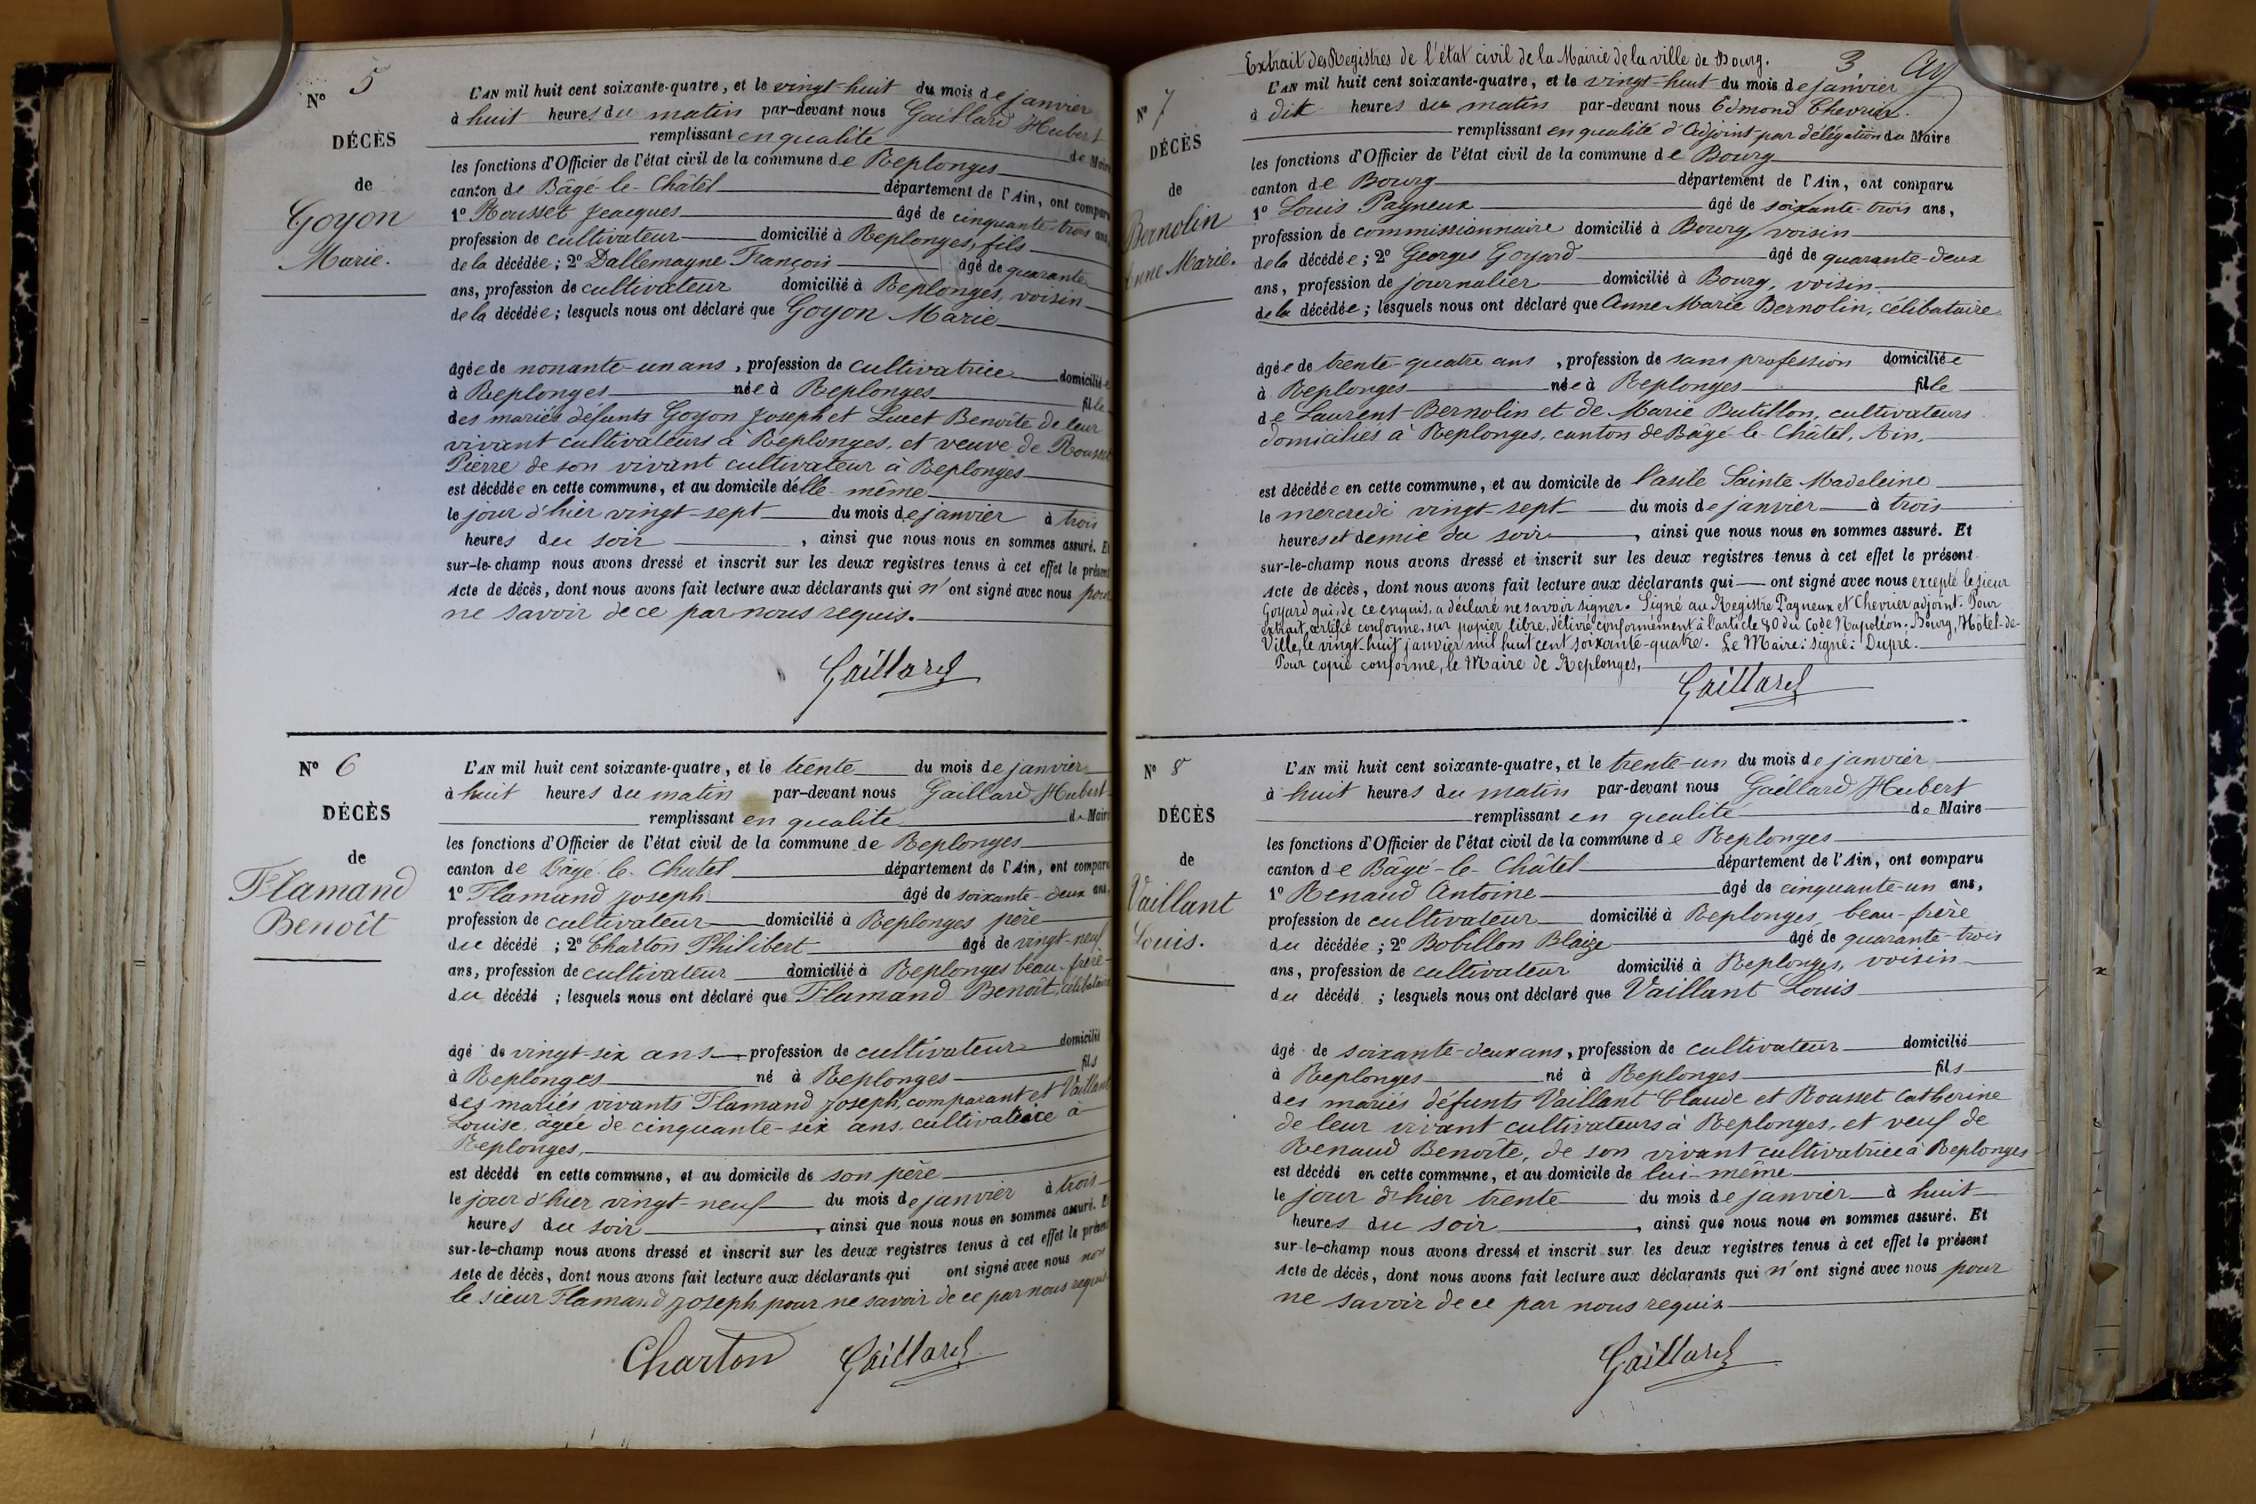 Nº 5
DÉCÈS
de
Goyon
Marie.
L'AN mil huit cent soixante-quatre, et le vingt-huit du mois de janvier
à huit heures du matin par-devant nous Gaillard Hubert
remplissant en qualité de Maire
les fonctions d'Officier de l'état civil de la commune de Replonges
canton de Bâgé-le-Châtel département de l'Ain, ont comparu
1º Rousset Jeacques âgé de cinquante-trois ans,
profession de cultivateur domicilié à Replonges, fils
de la décédée; 2º Dallemagne François âgé de quarante
ans, profession de cultivateur domicilié à Replonges, voisin
de la décédée; lesquels nous ont déclaré que Goyon Marie
âgée de nonante-un ans, profession de cultivatrice domiciliée
à Replonges née à Replonges fille
des mariés défunts Goyon Joseph et Lucet Benoîte de leur
vivant cultivateurs à Replonges, et veuve de Rousset
Pierre de son vivant cultivateur à Replonges
est décédée en cette commune, et au domicile d'elle-même
le jour d'hier vingt-sept du mois de janvier à trois
heures du soir, ainsi que nous nous en sommes assuré. Et
sur-le-champ nous avons dressé et inscrit sur les deux registres tenus à cet effet le présent
Acte de décès, dont nous avons fait lecture aux déclarants qui n'ont signé avec nous pour
ne savoir de ce par nous requis.
Gaillard
Nº 6
DÉCÈS
de
Flamand
Benoît
L'AN mil huit cent soixante-quatre, et le trente du mois de janvier
à huit heures du matin par-devant nous Gaillard Hubert
remplissant en qualité de Maire
les fonctions d'Officier de l'état civil de la commune de Replonges
canton de Bâgé-le-Châtel département de l'Ain, ont comparu
1º Flamand Joseph âgé de soixante-deux ans,
profession de cultivateur domicilié à Replonges père
du décédé; 2º Charton Philibert âgé de vingt-neuf
ans, profession de cultivateur domicilié à Replonges beau-frère
du décédé; lesquels nous ont déclaré que Flamand Benoît, célibataire
âgé de vingt-six ans profession de cultivateur domicilié
à Replonges né à Replonges fils
des mariés vivants Flamand Joseph, comparant et Vaillant
Louise, âgée de cinquante-six ans, cultivatrice à
Replonges,
est décédé en cette commune, et au domicile de son père
le jour d'hier vingt-neuf du mois de janvier à trois
heures du soir, ainsi que nous nous en sommes assuré. Et
sur-le-champ nous avons dressé et inscrit sur les deux registres tenus à cet effet le présent
Acte de décès, dont nous avons fait lecture aux déclarants qui ont signé avec nous non
le sieur Flamand Joseph pour ne savoir de ce par nous requis.
Charton Gaillard
Extrait des Registres de l'état civil de la Mairie de la ville de Bourg. 3
Nº 7
DÉCÈS
de
Bernolin
Anne Marie.
L'AN mil huit cent soixante-quatre, et le vingt-huit du mois de janvier
à dix heures du matin par-devant nous Edmond Chevrier.
remplissant en qualité d'Adjoint par délégation du Maire
les fonctions d'Officier de l'état civil de la commune de Bourg
canton de Bourg département de l'Ain, ont comparu
1º Louis Pagneux âgé de soixante-trois ans,
profession de commissionnaire domicilié à Bourg, voisin
de la décédée; 2º Georges Goyard âgé de quarante-deux
ans, profession de journalier domicilié à Bourg, voisin
de la décédée; lesquels nous ont déclaré que Anne Marie Bernolin, célibataire
âgée de trente-quatre ans, profession de sans profession domiciliée
à Replonges née à Replonges fille
de Laurent Bernolin et de Marie Butillon, cultivateurs
domiciliés à Replonges, canton de Bâgé-le-Châtel, Ain,
est décédée en cette commune, et au domicile de l'asile Sainte Madeleine
le mercredi vingt-sept du mois de janvier à trois
heures et demie du soir, ainsi que nous nous en sommes assuré. Et
sur-le-champ nous avons dressé et inscrit sur les deux registres tenus à cet effet le présent
Acte de décès, dont nous avons fait lecture aux déclarants qui ont signé avec nous excepté le sieur
Goyard qui, de ce enquis, a déclaré ne savoir signer. Signé au Registre Pagneux et Chevrier adjoint. Pour
extrait, certifié conforme, sur papier libre, délivré conformément à l'article 80 du Code Napoléon. Bourg, Hôtel-de-
Ville, le vingt-huit janvier mil huit cent soixante-quatre. Le Maire: signé: Dupré.
Pour copie conforme, le Maire de Replonges,
Gaillard
Nº 8
DÉCÈS
de
Vaillant
Louis.
L'AN mil huit cent soixante-quatre, et le trente-un du mois de janvier
à huit heures du matin par-devant nous Gaillard Hubert
remplissant en qualité de Maire
les fonctions d'Officier de l'état civil de la commune de Replonges
canton de Bâgé-le-Châtel département de l'Ain, ont comparu
1º Renaud Antoine âgé de cinquante-un ans,
profession de cultivateur domicilié à Replonges beau-frère
du décédée; 2º Bobillon Blaize âgé de quarante-trois
ans, profession de cultivateur domicilié à Replonges, voisin
du décédé; lesquels nous ont déclaré que Vaillant Louis
âgé de soixante-deux ans, profession de cultivateur domicilié
à Replonges né à Replonges fils
des mariés défunts Vaillant Claude et Rousset Catherine
de leur vivant cultivateurs à Replonges, et veuf de
Renaud Benoîte, de son vivant cultivatrice à Replonges
est décédé en cette commune, et au domicile de lui-même
le jour d'hier trente du mois de janvier à huit
heures du soir, ainsi que nous nous en sommes assuré. Et
sur-le-champ nous avons dressé et inscrit sur les deux registres tenus à cet effet le présent
Acte de décès, dont nous avons fait lecture aux déclarants qui n'ont signé avec nous pour
ne savoir de ce par nous requis
Gaillard